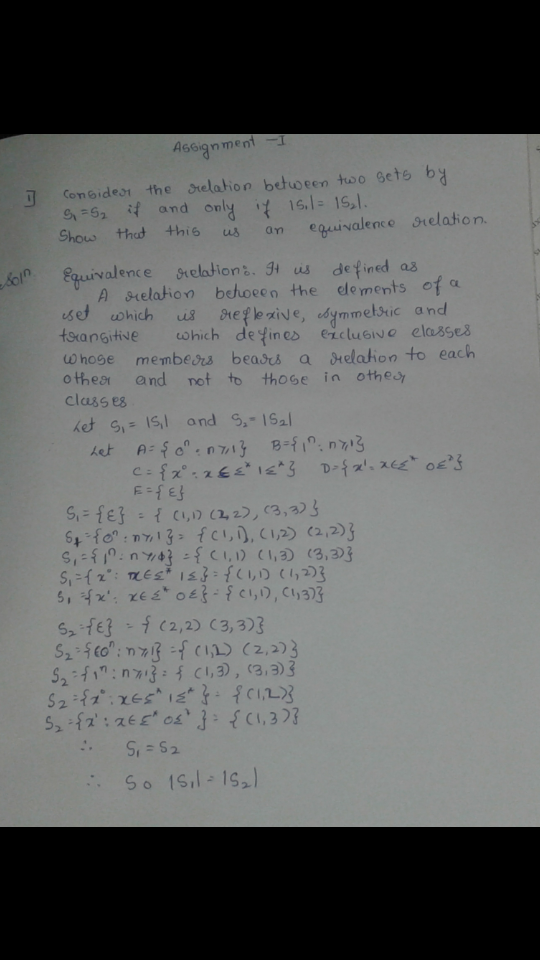 Assignment -I
1] Consider the relation between two sets by
S₁=S₂ if and only if |S₁|= |S₂|.
Show that this us an equivalence relation.
Solⁿ. Equivalence relation:. It us defined as
A relation between the elements of a
set which us reflexive, symmetric and
transitive which defines exclusive classes
whose members bears a relation to each
other and not to those in other,
classes.
Let S₁ = |S₁| and S₂=|S₂|
Let A={0ⁿ: n≥1} B={1ⁿ: n≥1}
C={x⁰: x∈Σ* 1Σ*} D={x¹: x∈Σ* 0Σ*}
E={ε}
S₁={ε} = {(1,1) (2,2), (3,3)}
S₁={0ⁿ: n≥1} = {(1,1), (1,2) (2,2)}
S₁={1ⁿ: n≥1} = {(1,1) (1,3) (3,3)}
S₁={x⁰: x∈Σ* 1Σ}={(1,1) (1,2)}
S₁={x¹: x∈Σ* 0Σ}={(1,1), (1,3)}
S₂={ε} = {(2,2) (3,3)}
S₂={ε0ⁿ: n≥1}={(1,2) (2,2)}
S₂={1ⁿ: n≥1}= {(1,3), (3,3)}
S₂={x⁰: x∈Σ* 1Σ*} = {(1,2)}
S₂={x¹: x∈Σ* 0Σ*}= {(1,3)}
∴ S₁=S₂
∴ So |S₁|=|S₂|